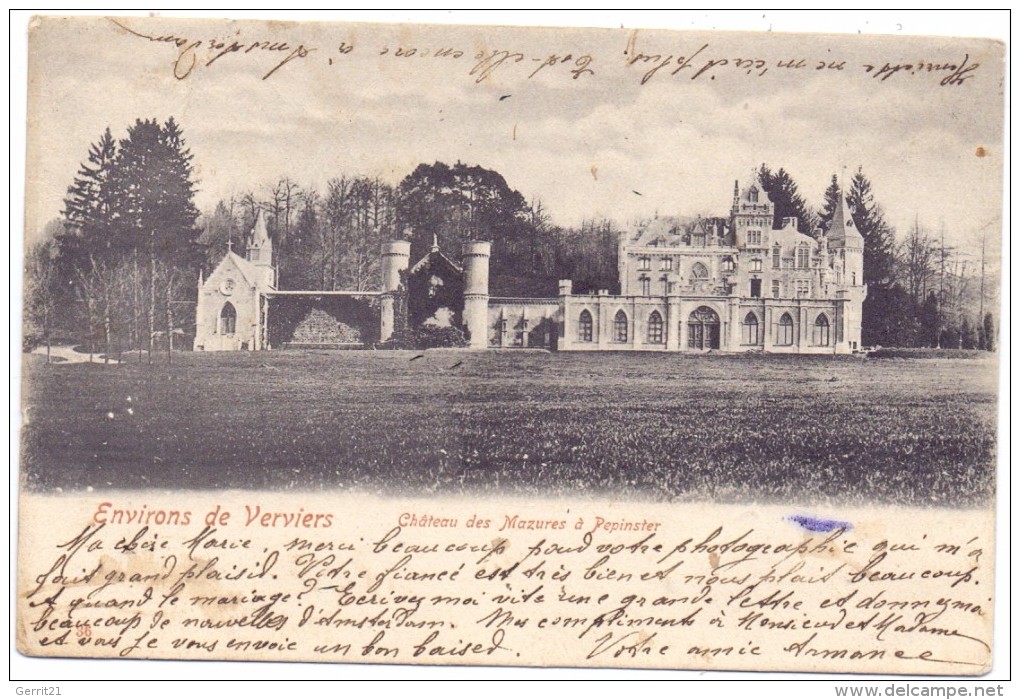 Henriette ne m'écrit plus. Est-elle encore à Amsterdam
Environs de Verviers Château des Mazures à Pepinster
Ma chère Marie, merci beaucoup pour votre photographie qui m'a
fait grand plaisir. Votre fiancé est très bien et nous plait beaucoup.
Et quand le mariage? Ecrivez moi vite une grande lettre et donnez moi
beaucoup de nouvelles d'Amsterdam. Mes compliments à Monsieur et Madame
et vous je vous envoie un bon baiser. Votre amie Armance
36
Gerrit21
www.delcampe.net